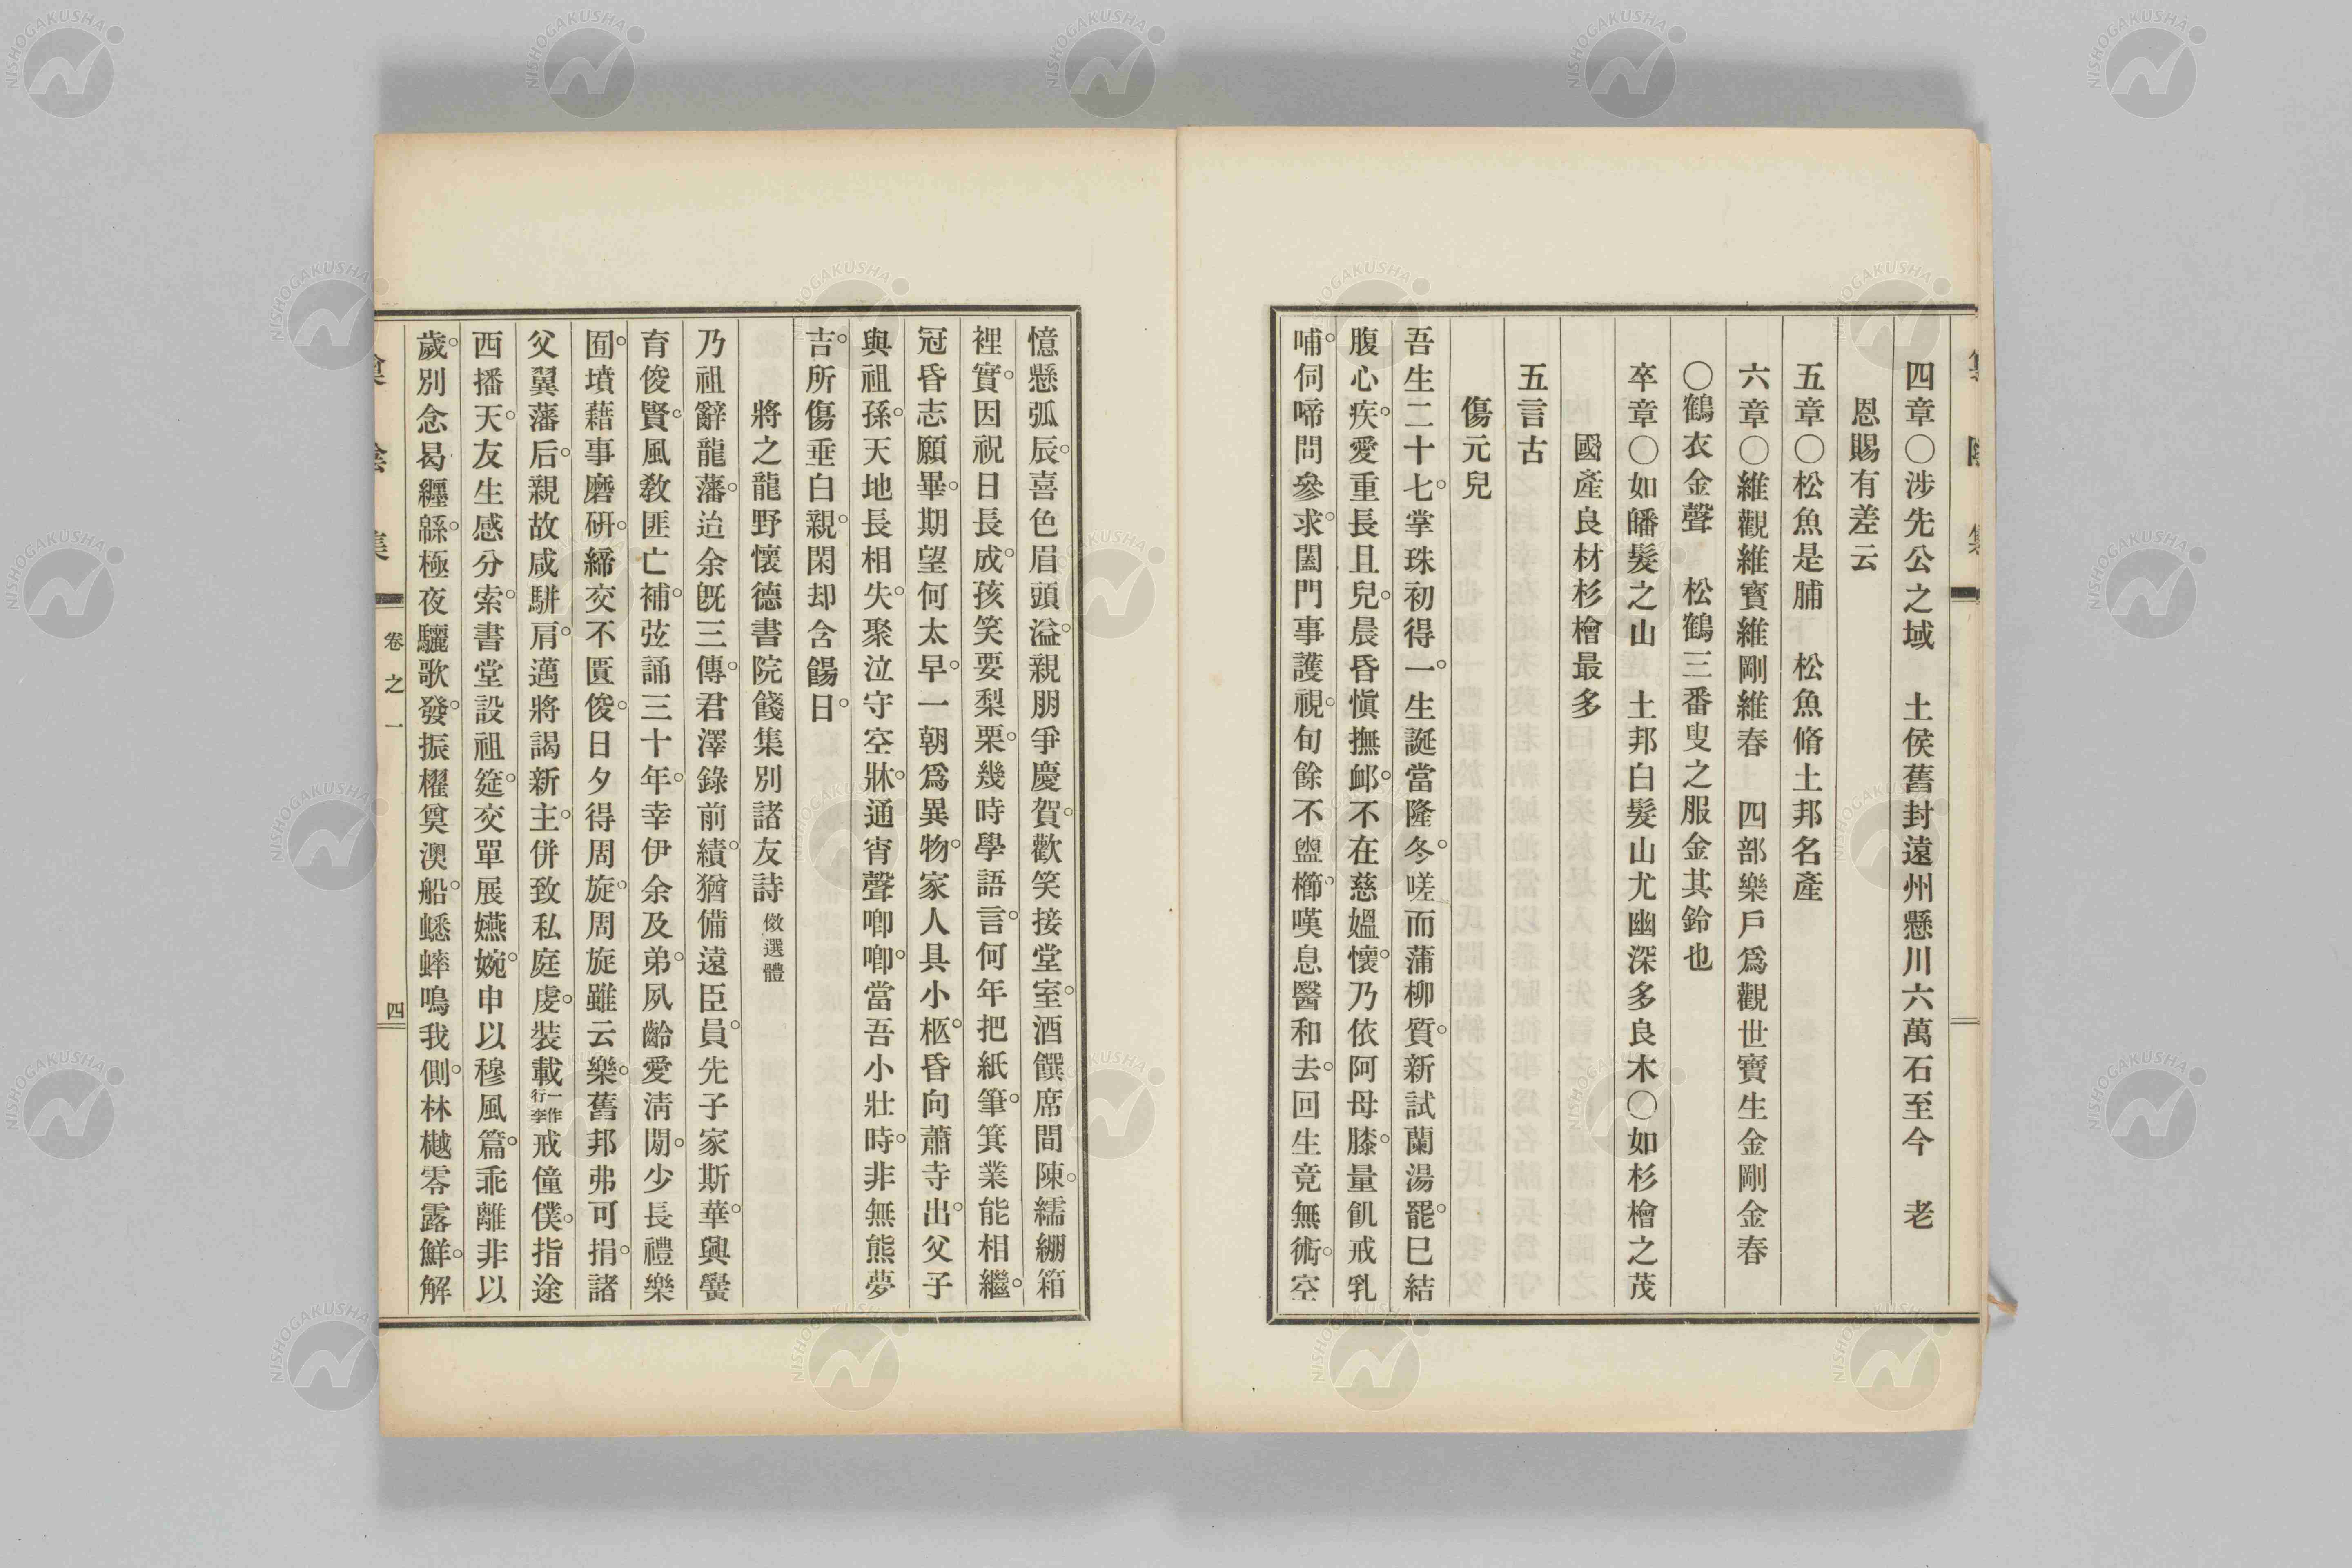 四章〇涉先公之域　土侯舊封遠州懸川六萬石至今　老
恩賜有差云
五章〇松魚是脯　松魚脩土邦名產
六章〇維觀維寶維剛維春　四部樂戶爲觀世寶生金剛金春
〇鶴衣金聲　松鶴三番叟之服金其鈴也
卒章〇如皤髮之山　土邦白髮山尤幽深多良木〇如杉檜之茂
國產良材杉檜最多
五言古
傷元兒
吾生二十七。掌珠初得一。生誕當隆冬。嗟而蒲柳質。新試蘭湯罷。巳結
腹心疾。愛重長且兒。晨昏愼撫卹。不在慈媼懷。乃依阿母膝。量飢戒乳
哺。伺啼問參求。闔門事護視。旬餘不盥櫛。嘆息醫和去。回生竟無術。空
憶懸弧辰。喜色眉頭溢。親朋爭慶賀。歡笑接堂室。酒饌席間陳。繻繃箱
裡實。因祝日長成。孩笑要梨栗。幾時學語言。何年把紙筆。箕業能相繼。
冠昏志願畢。期望何太早。一朝爲異物。家人具小柩。昏向蕭寺出。父子
與祖孫。天地長相失。聚泣守空牀。通宵聲喞喞。當吾小壯時。非無熊夢
吉。所傷垂白親。閑却含餳日。
將之龍野懷德書院餞集別諸友詩 傚選體
乃祖辭龍藩。迨余旣三傳。君澤錄前績。猶備遠臣員。先子家斯華。輿黌
育俊賢。風敎匪亡補。弦誦三十年。幸伊余及弟。夙齡愛淸閒。少長禮樂
囿。墳藉事磨硏。締交不匱俊。日夕得周旋。周旋雖云樂。舊邦弗可捐。諸
父翼藩后。親故咸駢肩。邁將謁新主。併致私庭虔。裝載一作行李戒僮僕。指途
西播天。友生感分索。書堂設祖筵。交單展嬿婉。申以穆風篇。乖離非以
歲。別念曷纒緜。極夜驪歌發。振櫂奠澳船。蟋蟀鳴我側。林樾零露鮮。解
卷之一
四